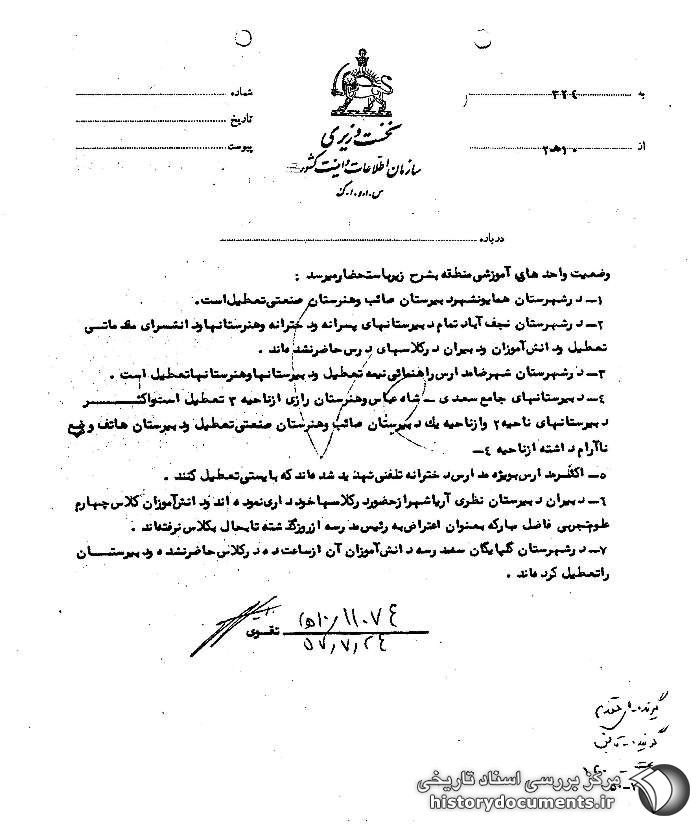 به ۳۲٤
شماره
از ۲۰هـ۱۰
تاریخ
پیوست
نخست وزیری
سازمان اطلاعات و امنیت کشور
درباره
وضعیت واحد های آموزشی منطقه بشرح زیر باستحضار میرسد :
۱ـ در شهرستان همایونشهر دبیرستان صائب وهنرستان صنعتی تعطیل است.
۲ـ در شهرستان نجف آباد تمام دبیرستانهای پسرانه ودخترانه وهنرستانها ودانشسرای مقدماتی
تعطیل ودانش آموزان ودبیران درکلاسهای درس حاضرنشده اند .
۳ـ در شهرستان شهرضا مدارس راهنمائی نیمه تعطیل ودبیرستانها وهنرستانها تعطیل است .
٤ـ دبیرستانهای جامع سعدی ـ شاه عباس وهنرستان رازی ازناحیه ۳ تعطیل است واکثر
دبیرستانهای ناحیه ۲ وازناحیه یک دبیرستان صائب وهنرستان صنعتی تعطیل ودبیرستان هاتف وضع
ناآرام داشته ازناحیه ٤ـ
۵ـ اکثر مدارس بویژه مدارس دخترانه تلفنی تهدید شده اند که بایستی تعطیل کنند .
٦ـ دبیران دبیرستان نظری آریاشهر ازحضور درکلاسها خودداری نموده اند ودانش آموزان کلاس چهارم
علوم تجربی فاضل مبارکه بعنوان اعتراض به رئیس مدرسه ازروز گذشته تابحال بکلاس نرفته اند .
۷ـ در شهرستان گلپایگان سه مدرسه دانش آموزان آن ازساعت ده درکلاس حاضرنشده ودبیرستان
راتعطیل کرده اند .
۱۱۰۷٤/۱۰هـ
تقوی
۵۷/۷/۲٤
مرکز بررسی اسناد تاریخی
historydocuments.ir